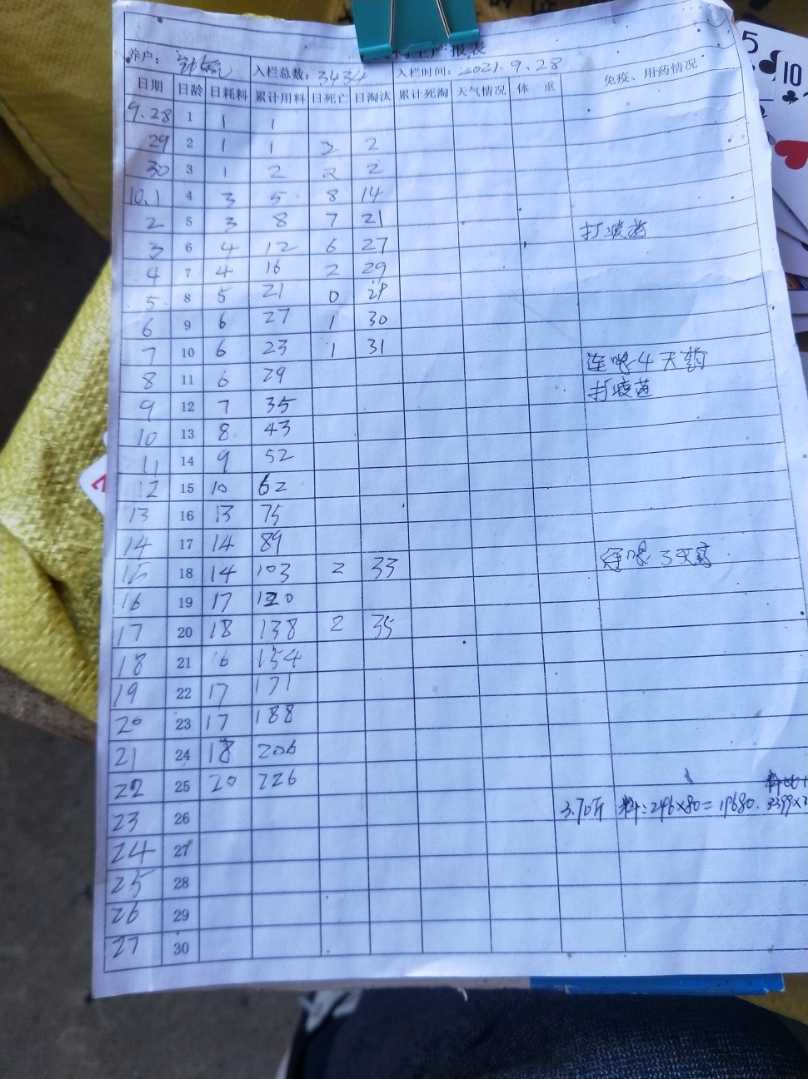 报表
养户: 入栏总数: 3434 入栏时间: 2021.9.28
日期 日龄 日耗料 累计用料 日死亡 日淘汰 累计死淘 天气情况 体 重 免疫、用药情况
9.28 1 1 1
29 2 1 1 3 2
30 3 1 2 2 2
10.1 4 3 5 8 14
2 5 3 8 7 21 打疫苗
3 6 4 12 6 27
4 7 4 16 2 29
5 8 5 21 0 29
6 9 6 27 1 30
7 10 6 23 1 31 连喂4天药
8 11 6 29 打疫苗
9 12 7 35
10 13 8 43
11 14 9 52
12 15 10 62
13 16 13 75
14 17 14 89 连喂3天药
15 18 14 103 2 33
16 19 17 120
17 20 18 138 2 35
18 21 16 154
19 22 17 171
20 23 17 188
21 24 18 206
22 25 20 226
23 26 3.70斤 料:246×80=19680. 3399×
24 27
25 28
26 29
27 30
5
10